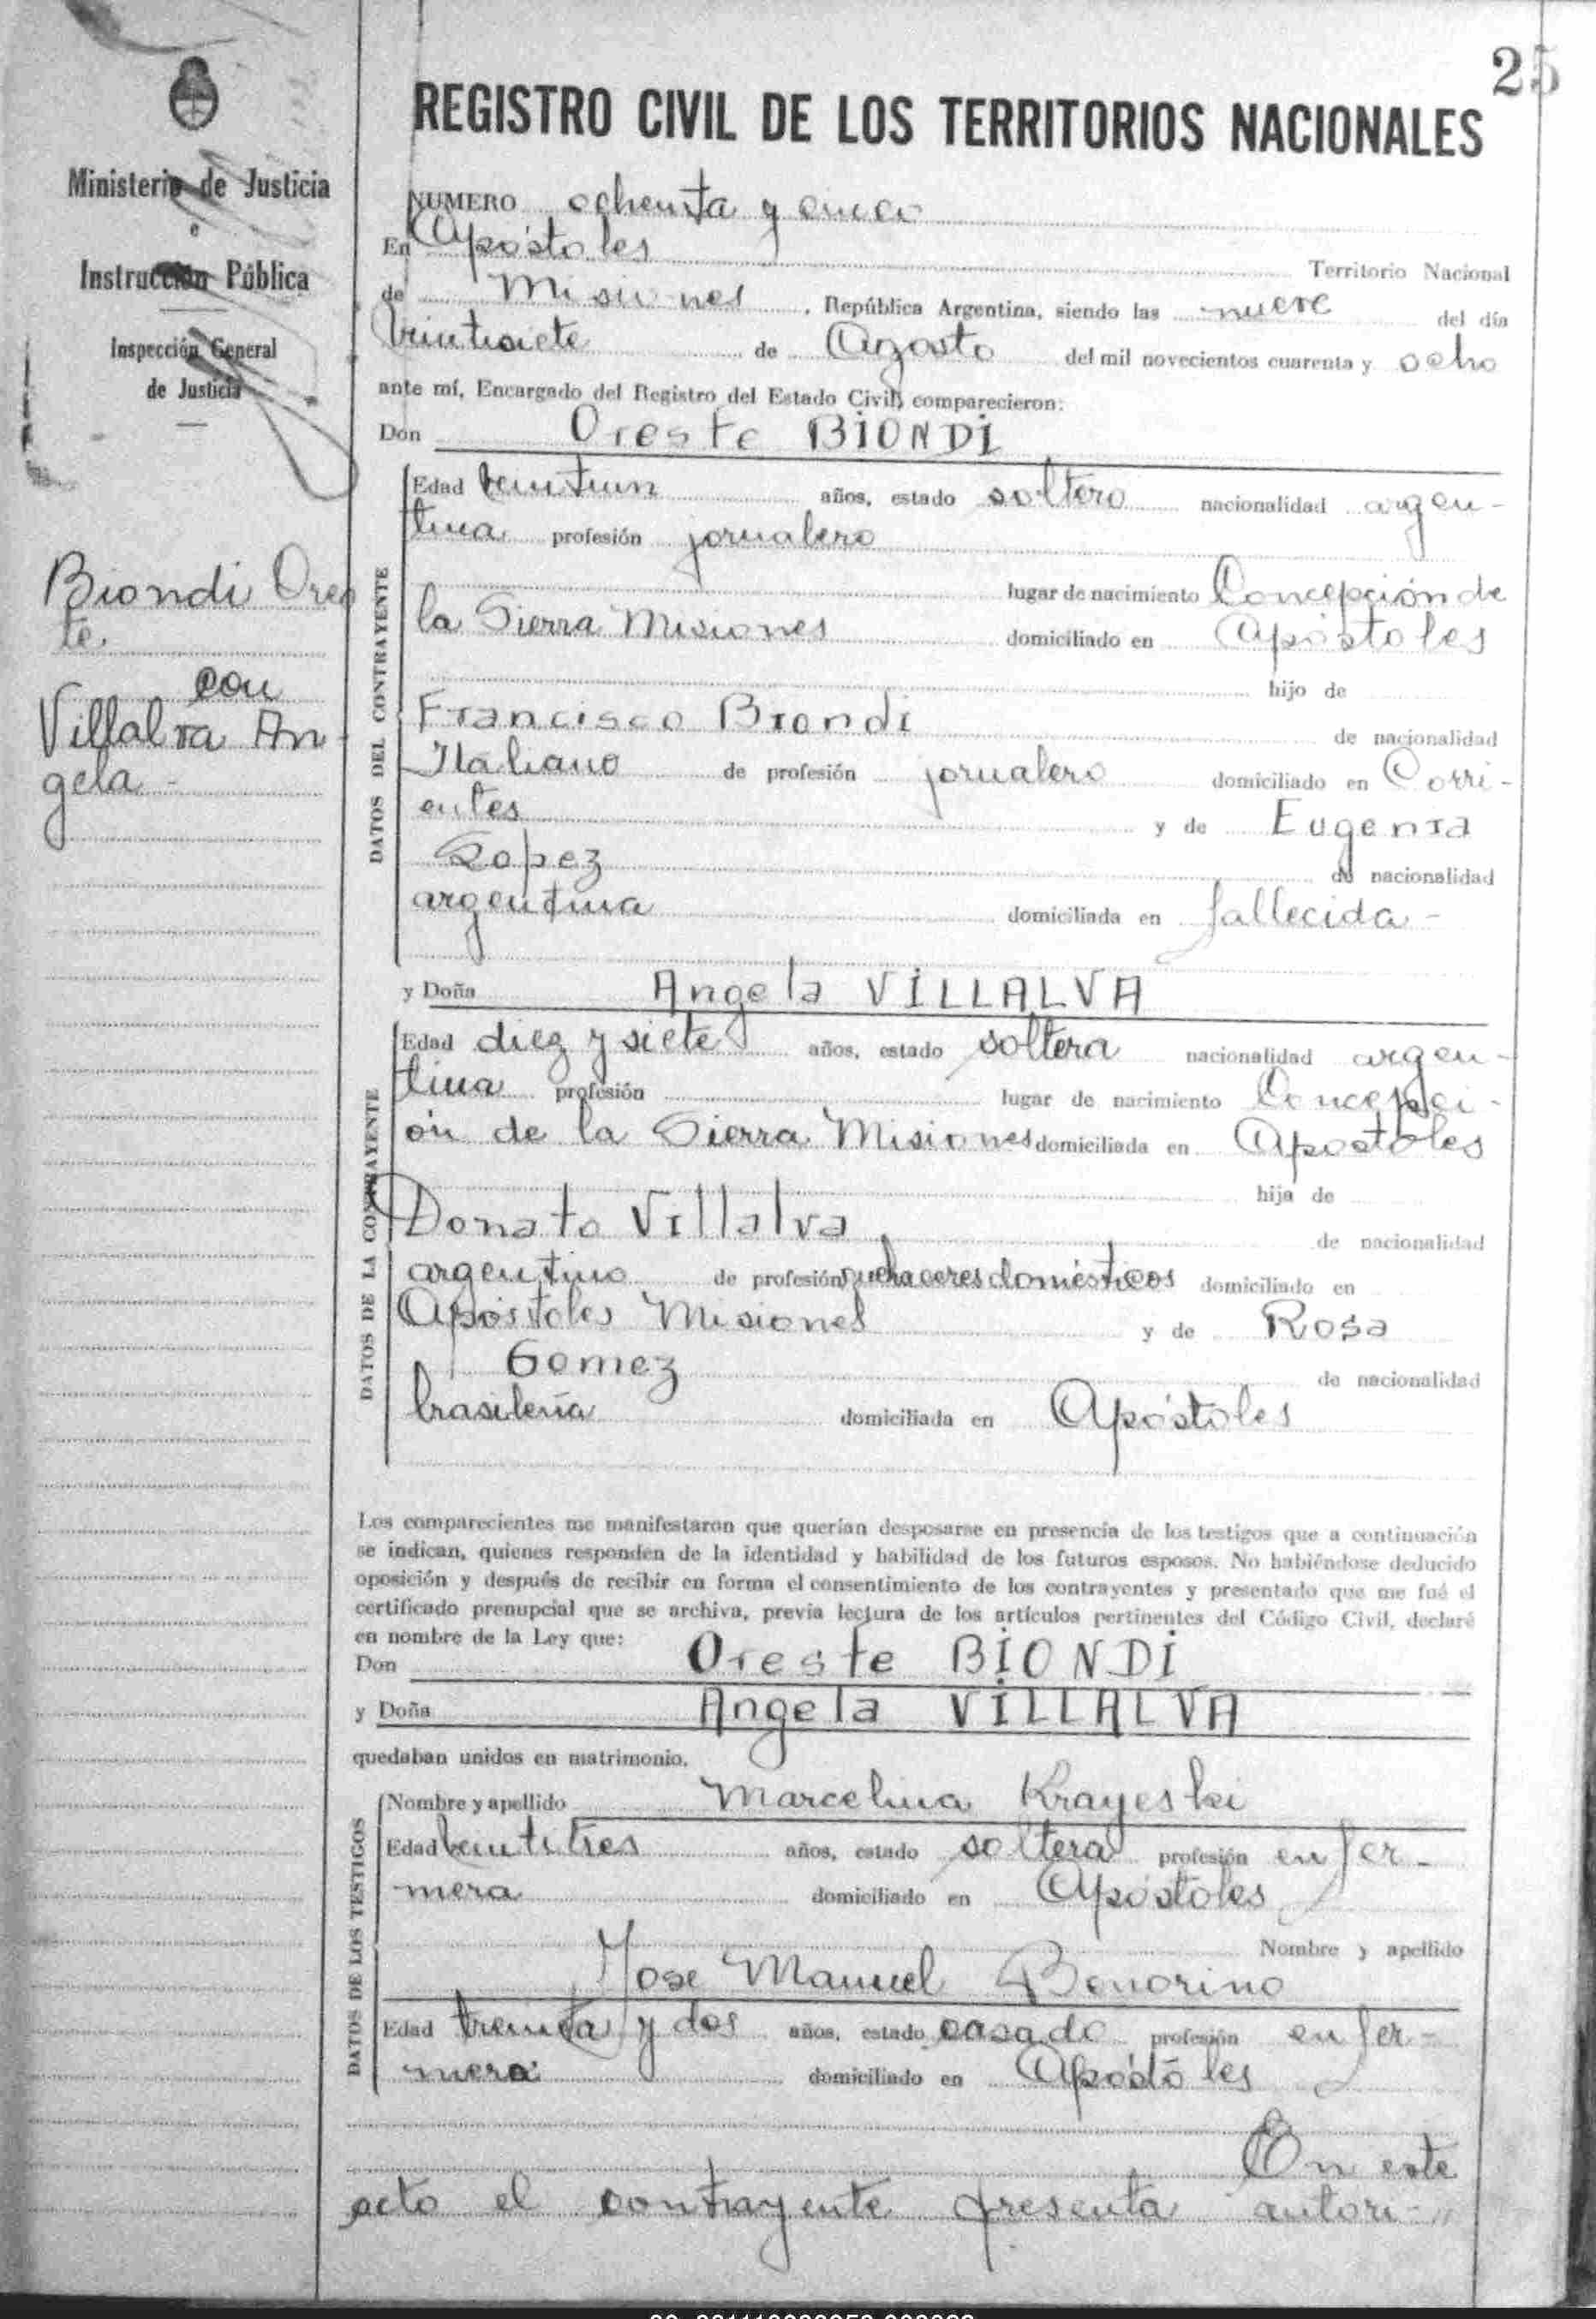 25
Ministerio de Justicia
e
Instrucción Pública
Inspección General
de Justicia
Biondi Ores
te
con
Villalva An
gela -
REGISTRO CIVIL DE LOS TERRITORIOS NACIONALES
NUMERO ochenta y cinco
En Apóstoles
Territorio Nacional
de Misiones, República Argentina, siendo las nueve del día
veintisiete de Agosto del mil novecientos cuarenta y ocho
ante mí, Encargado del Registro del Estado Civil, comparecieron:
Don Oreste BIONDI
DATOS DEL CONTRAYENTE
Edad veintiun años, estado soltero nacionalidad argen-
tina profesión jornalero
lugar de nacimiento Concepción de
la Sierra Misiones domiciliado en Apóstoles
hijo de
Francisco Biondi de nacionalidad
Italiano de profesión jornalero domiciliado en Corri-
entes y de Eugenia
Lopez de nacionalidad
argentina domiciliada en fallecida -
y Doña Angela VILLALVA
DATOS DE LA CONTRAYENTE
Edad diez y siete años, estado soltera nacionalidad argen-
tina profesión lugar de nacimiento Concepci-
ón de la Sierra Misiones domiciliada en Apostoles
hija de
Donato Villalva de nacionalidad
argentino de profesión quehaceres domésticos domiciliado en
Apóstoles Misiones y de Rosa
Gomez de nacionalidad
brasileña domiciliada en Apóstoles
Los comparecientes me manifestaron que querían desposarse en presencia de los testigos que a continuación
se indican, quienes responden de la identidad y habilidad de los futuros esposos. No habiéndose deducido
oposición y después de recibir en forma el consentimiento de los contrayentes y presentado que me fué el
certificado prenupcial que se archiva, previa lectura de los artículos pertinentes del Código Civil, declaré
en nombre de la Ley que:
Don Oreste BIONDI
y Doña Angela VILLALVA
quedaban unidos en matrimonio.
DATOS DE LOS TESTIGOS
Nombre y apellido Marcelina Krayeski
Edad veintitres años, estado soltera profesión enfer-
mera domiciliado en Apóstoles
Nombre y apellido
Jose Manuel Bonorino
Edad treinta y dos años, estado casado profesión enfer-
mero domiciliado en Apóstoles
En este
acto el contrayente presenta autori-